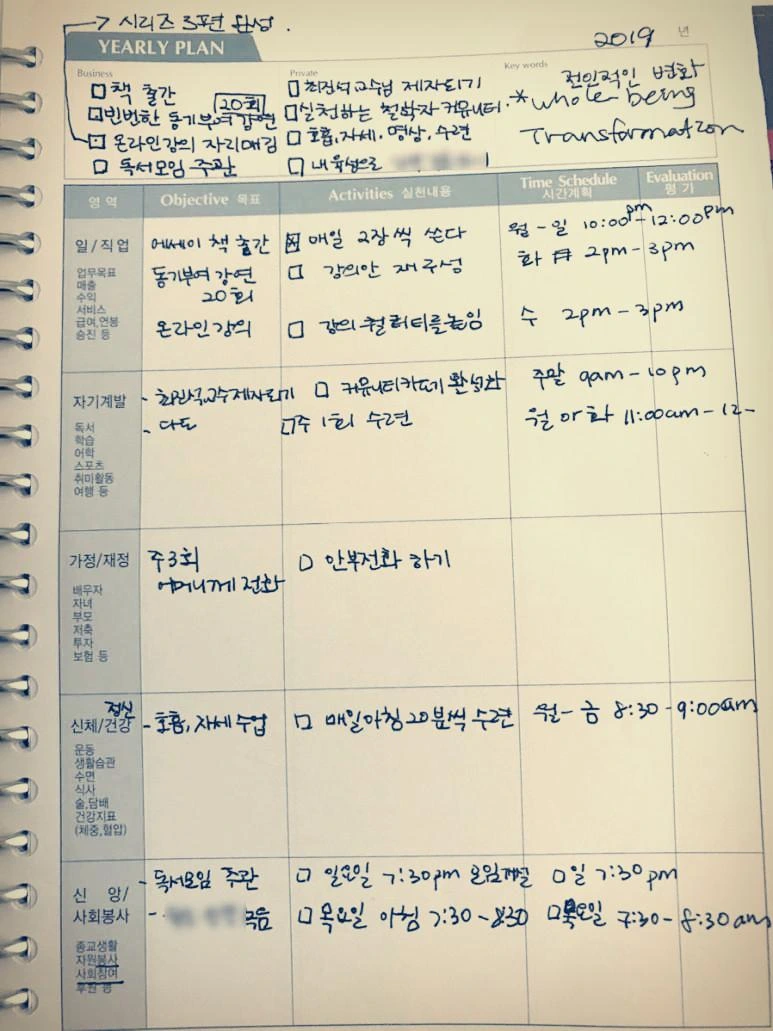 → 시리즈 3편 완성.
YEARLY PLAN
2019 년
Business
□ 책 출간
□ 빈번한 동기부여 강연 20회
□ 온라인 강의 자리매김
□ 독서모임 주관
Private
□ 최진석 교수님 제자되기
□ 실천하는 철학자 커뮤니티.
□ 호흡, 자세, 명상, 수련
□ 내면성으로
Key words
전인적인 변화
* whole being
Transformation
영 역 Objective 목표 Activities 실천내용 Time Schedule 시간계획 Evaluation 평 가
일/직업
업무목표
매출
수익
서비스
급여,연봉
승진 등
에세이 책 출간 ☒ 매일 2장씩 쓴다 월-일 10:00pm-12:00pm
동기부여 강연 20회 □ 강의안 재구성 화 목 2pm-3pm
온라인 강의 □ 강의 퀄러티를 높임 수 2pm-3pm
자기계발
독서
학습
어학
스포츠
취미활동
여행 등
- 최진석교수제자되기 □ 커뮤니티카드기 활성화 주말 9am-10pm
- 다도 □ 주 1회 수련 월 or 화 11:00am-12-
가정/재정
배우자
자녀
부모
저축
투자
보험 등
주3회
어머니께 전화 □ 안부전화 하기
정신
신체/건강
운동
생활습관
수면
식사
술,담배
건강지표
(체중,혈압)
- 호흡, 자세 수업 □ 매일아침 20분씩 수련 월-금 8:30-9:00am
신 앙/
사회봉사
종교생활
자원봉사
사회참여
후원 등
- 독서모임 주관 □ 일요일 7:30pm 모임개설 □ 일 7:30pm
- 모음 □ 목요일 아침 7:30-8:30 □ 목요일 7:30-8:30am